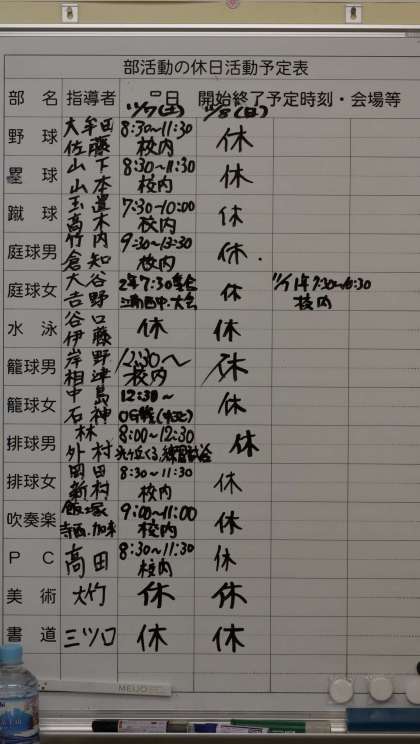 部活動の休日活動予定表
部名 指導者 月日 開始終了予定時刻・会場等
11/7(土) 11/8(日)
野球 大牟田 佐藤 8:30~11:30 校内 休
塁球 山下 山本 8:30~11:30 校内 休
蹴球 玉置 高木 7:30~10:00 校内 休
庭球男 竹内 倉知 9:30~13:30 校内 休
庭球女 大谷 吉野 2年7:30集合 大会 休 校内
水泳 谷口 伊藤 休 休
籠球男 岸野 相津 12:30~ 校内 休
籠球女 中島 石神 12:30~ OG戦 休
排球男 林 外村 8:00~12:30 練習試合 休
排球女 岡田 新村 8:30~11:30 校内 休
吹奏楽 飯塚 寺西・加来 9:00~11:00 校内 休
PC 高田 8:30~11:30 校内 休
美術 大竹 休 休
書道 三ツ口 休 休
MEIJO